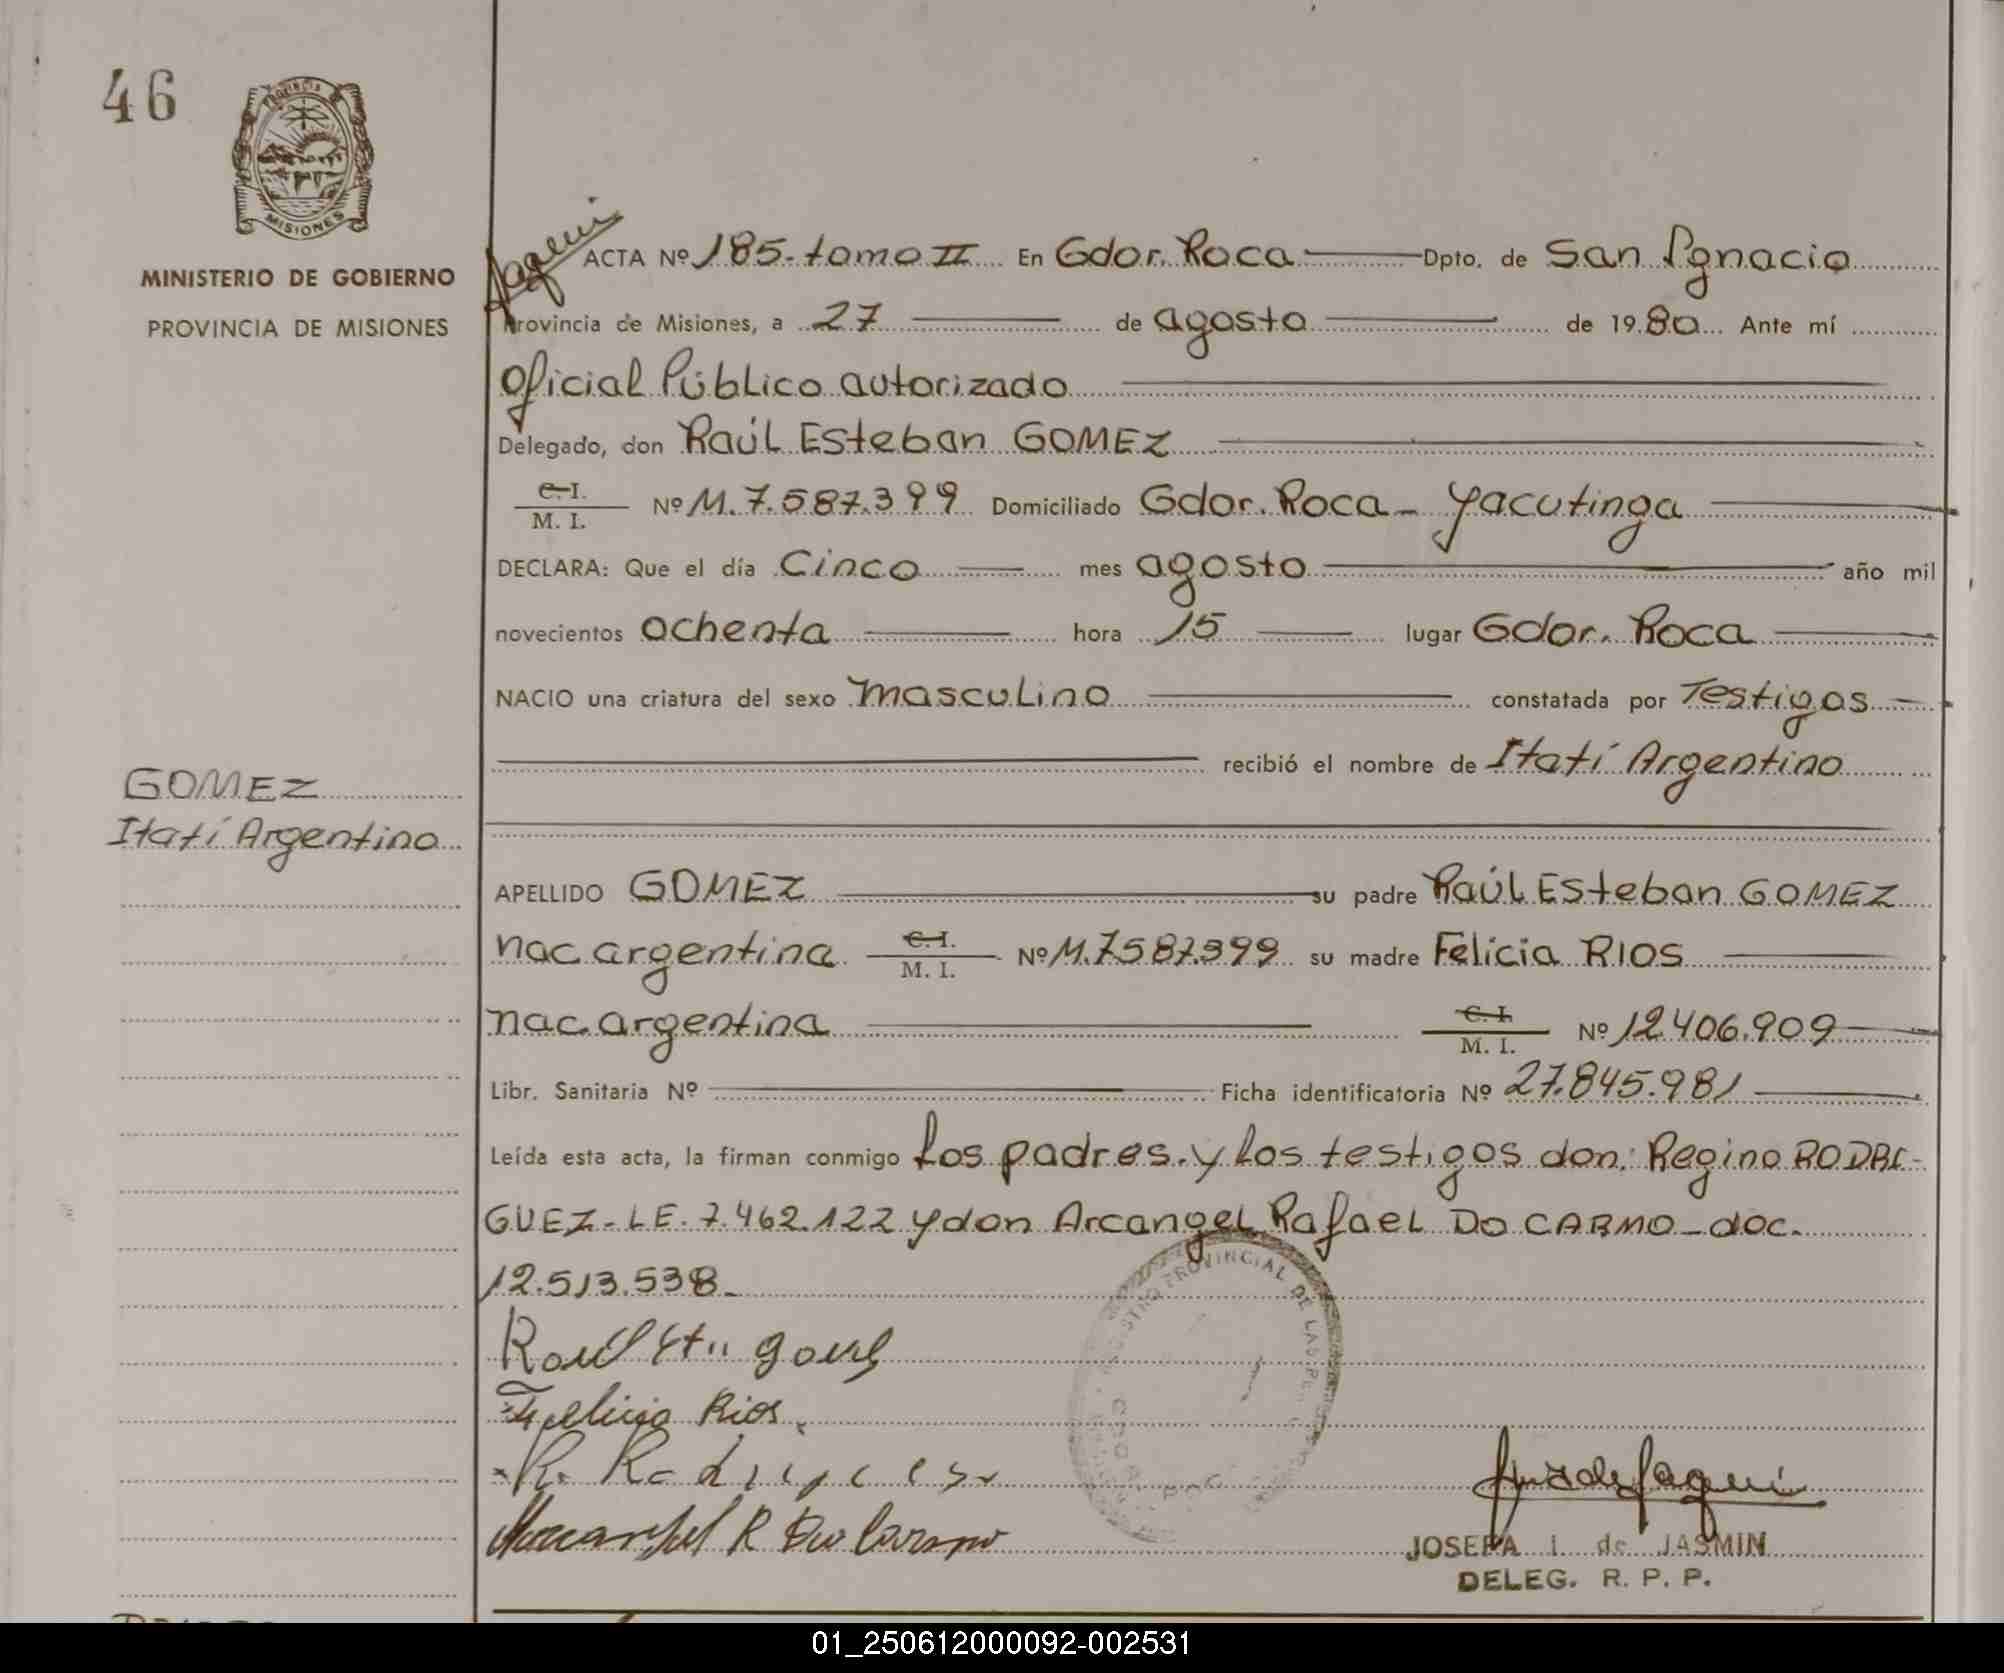 46
PROVINCIA DE
MISIONES
MINISTERIO DE GOBIERNO
PROVINCIA DE MISIONES
GOMEZ
Itatí Argentino
ACTA Nº 185-tomo II En Gdor. Roca Dpto. de San Ignacio
Provincia de Misiones, a 27 de agosto de 1980 Ante mí
Oficial Público autorizado
Delegado, don Raúl Esteban GOMEZ
C. I.
M. I. Nº M. 7.587.399 Domiciliado Gdor. Roca - Yacutinga
DECLARA: Que el día Cinco mes agosto año mil
novecientos ochenta hora 15 lugar Gdor. Roca
NACIO una criatura del sexo masculino constatada por Testigos
recibió el nombre de Itatí Argentino
APELLIDO GOMEZ su padre Raúl Esteban GOMEZ
nac. argentina C. I. M. I. Nº M. 7587.399 su madre Felicia RIOS
nac. argentina C. I. M. I. Nº 12.406.909
Libr. Sanitaria Nº Ficha identificatoria Nº 27.845.981
Leída esta acta, la firman conmigo los padres y los testigos don: Regino RODRI-
GUEZ - LE. 7.462.122 y don Arcangel Rafael DO CARMO - doc.
12.513.538.
Felicia Rios
JOSEFA I. de JASMIN
DELEG. R. P. P.
PROVINCIAL DE LAS
01_250612000092-002531